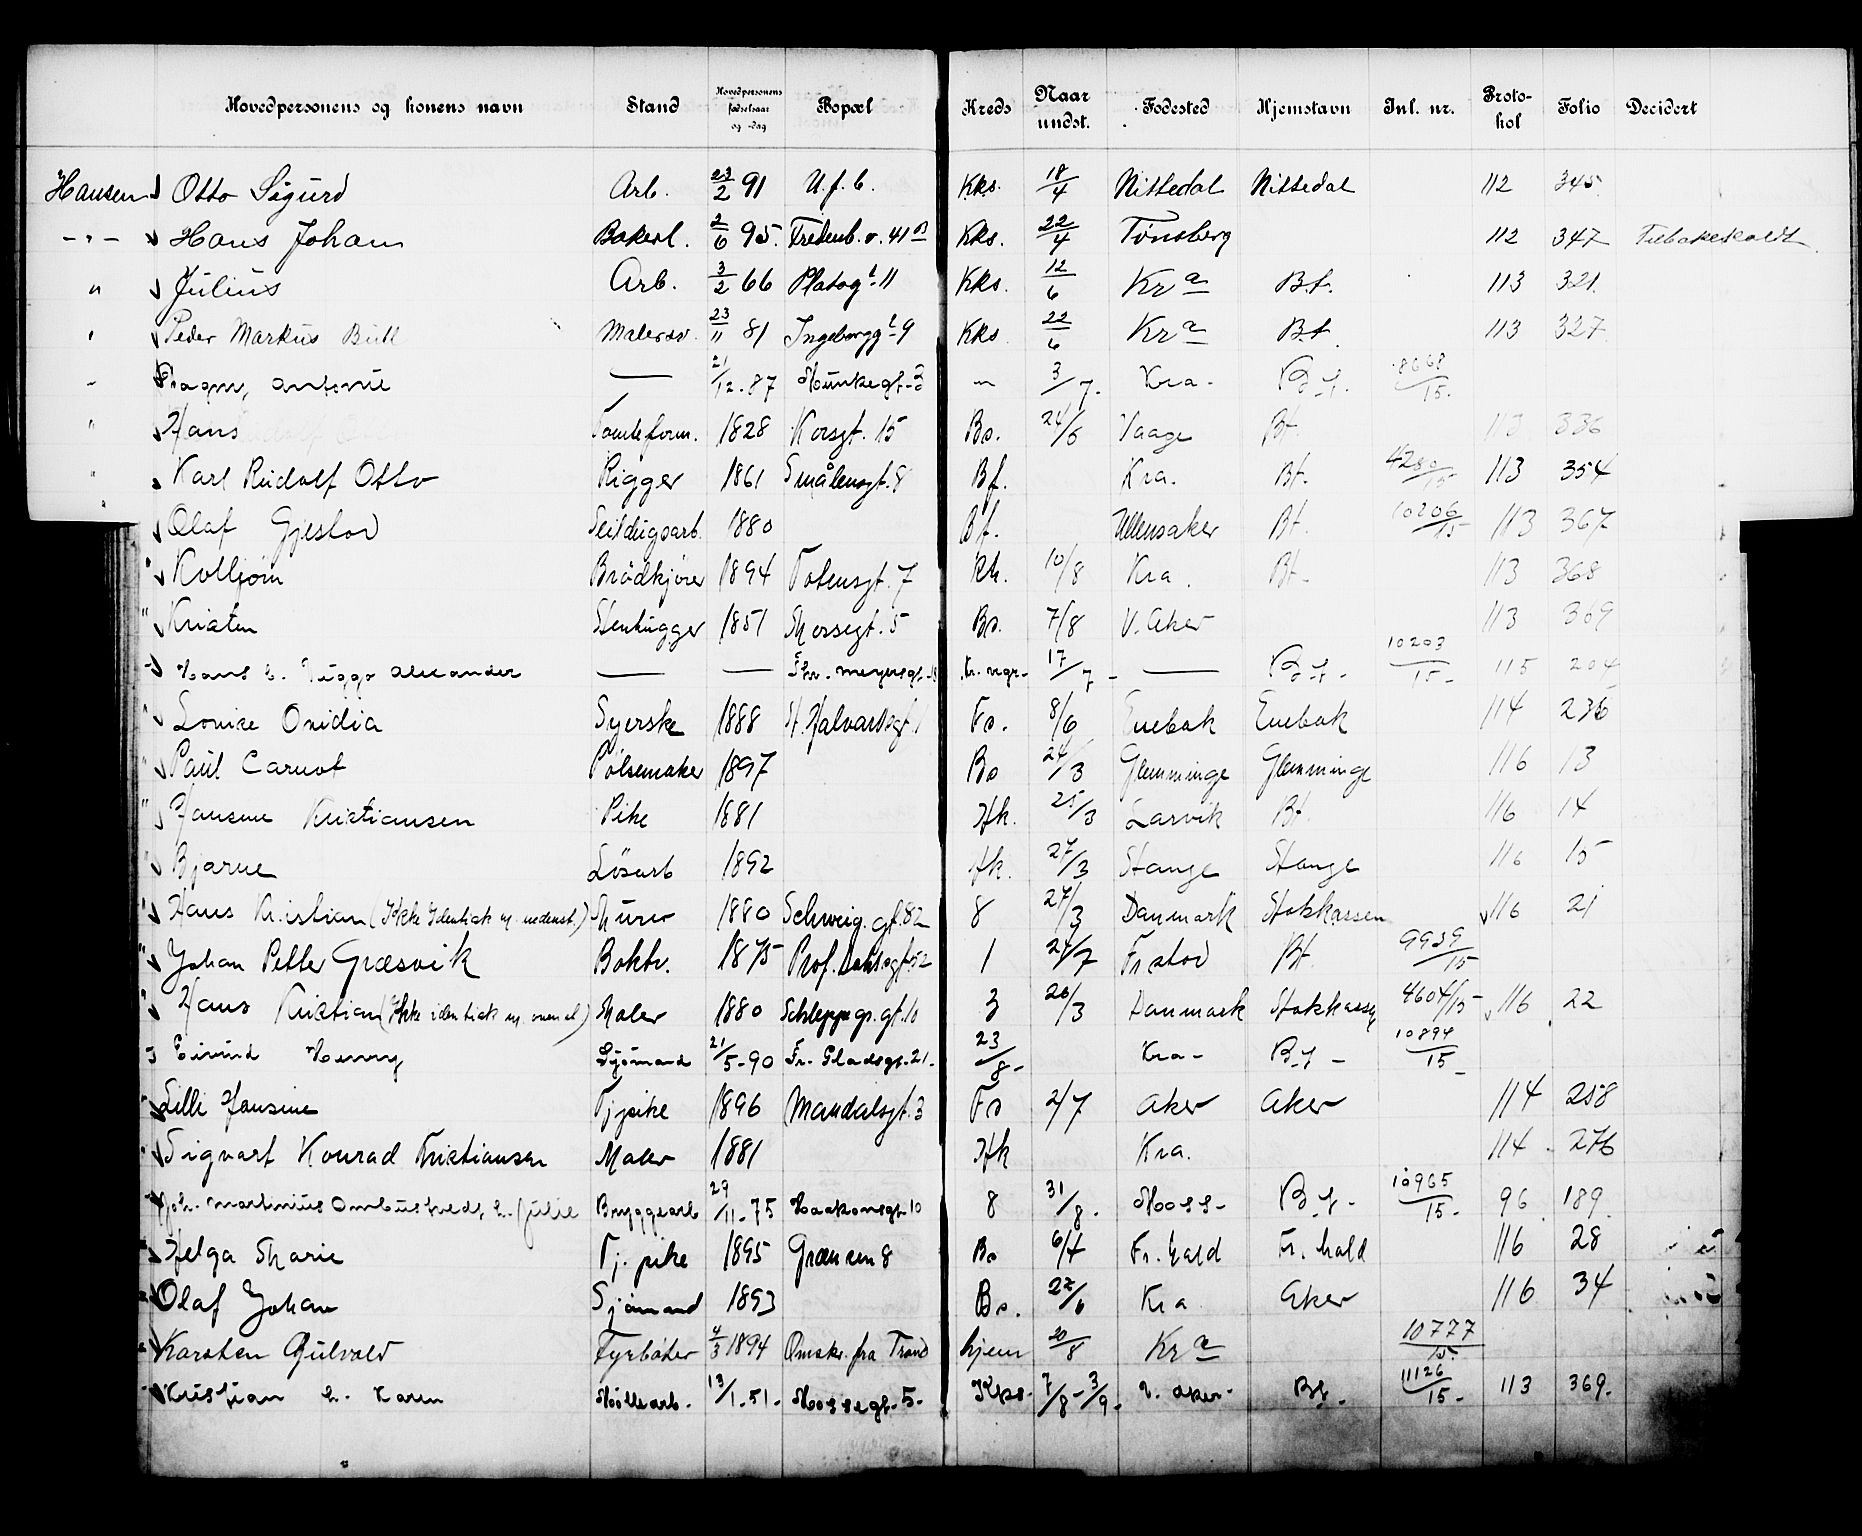 Hovedpersonens og konens navn Stand Hovedpersonens fødselsaar og -dag Bopæl Kreds Naar undst. Fødested Hjemstavn Inl. nr. Protokol Folio Decidert
Hansen Otto Sigurd Arb. 23/2 91 U.f.b. Kks. 18/4 Nittedal Nittedal 112 345
-"- Hans Johan Bakerl. 2/6 95. Fredenb.v. 41 B Kks. 22/4 Tønsberg 112 347 Tilbakekaldt
" Julius Arb. 3/2 66 Platog t 11 Kks. 12/6 Kr a B.f. 113 321.
" Peder Markus Buhl Malersv. 23/11 81 Ingeborgg t 9 Kks 22/6 Kr a B.f. 113 327
" Antonie — 21/12-87 Munkegt-3 " 3/7- Kra- B.f. 8668/15-
" Hans Tomteform. 1828 Korsgt. 15 Bs. 24/6 Vaage Bf. 113 336
" Karl Rudolf Otto Rigger 1861 Smålensgt. 8 Bf. Kra. Bf. 4280/15 113 354
Olaf Gjestad Seildugsarb. 1880 Bf. Ullensaker Bf. 10206/15 113 367
" Kolbjørn Brødkjører 1894 Totensgt. 7 Rh. 10/8 Kra. Bf- 113 368
" Kristen Stenhugger 1851 Mossegt. 5 Bs. 7/8 V. Aker 113 369
" Hans E. Viggo Alexander — — Thv. Meyersgt- Kr. vgr- 17/7- — B.f- 10203/15- 115 204
" Lovise Ovidia Syerske 1888 St. Halvardsgt. 1 Fs. 8/6 Enebak Enebak 114 236
" Paul Carnot Pølsemaker 1897 Bs 24/3 Glemminge Glemminge 116 13
" Hansine Kristiansen Pike 1881 Hk. 25/3 Larvik Bf. 116 14
" Bjarne Løsarb 1892 Hk. 27/3 Stange Stange 116 15
" Hans Kristian (Ikke Identisk m. nedenst.) Murer 1880 Schweig. gt. 82 8 27/3 Danmark Statskassen 116 21
" Johan Petter Græsvik Boktr. 1875 Prof. Dahlsgt. 52 1 24/7 Frstad Bf. 9939/15
" Hans Kristian (Ikke identisk m. ovenst) Maler 1880 Schleppegr. gt. 10 3 26/3 Danmark Statskassen 4604/15 116 22
" Eivind Henry Sjømand 21/5-90 Fr. Gladsgt-21- 23/8- Kra- B.f- 10894/15-
" Lilli Hansine Tjpike 1896 Mandalsgt. 3 Fs 2/7 Aker Aker 114 258
" Sigvart Konrad Kristiansen Maler 1881 Hk Kra. 114 - 276
Joh. Martinius E. Julie Bryggearb 29/11-75 Haakonsgt-10 8 31/8- Moss- B.f- 10965/15- 96 189
" Helga Marie Tj. pike 1895 Grænsen 8 Bs 6/4 Fr. hald Fr. hald 116 28
" Olaf Johan Sjømand 1893 Bs. 22/6 Kra Aker 116 34
" Karsten Gulvald Fyrbøter 4/3 1894 Omskr. fra Trond hjem 20/8 Kr a 10777/15-
" Kristian E. Karen Møllearb- 13/1-51- Mossegt-5- Kks- 7/8-3/9- V. Aker- Bf- 11126/15- 113 369-